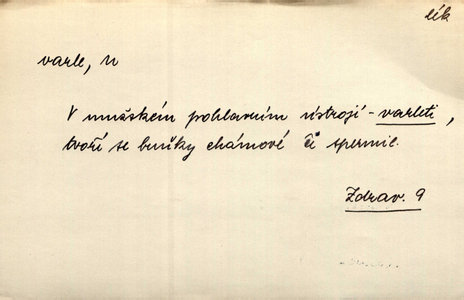 lék
varle, n
V mužském pohlavním ústrojí - varleti,
tvoří se buňky chámové či spermie.
Zdrav. 9